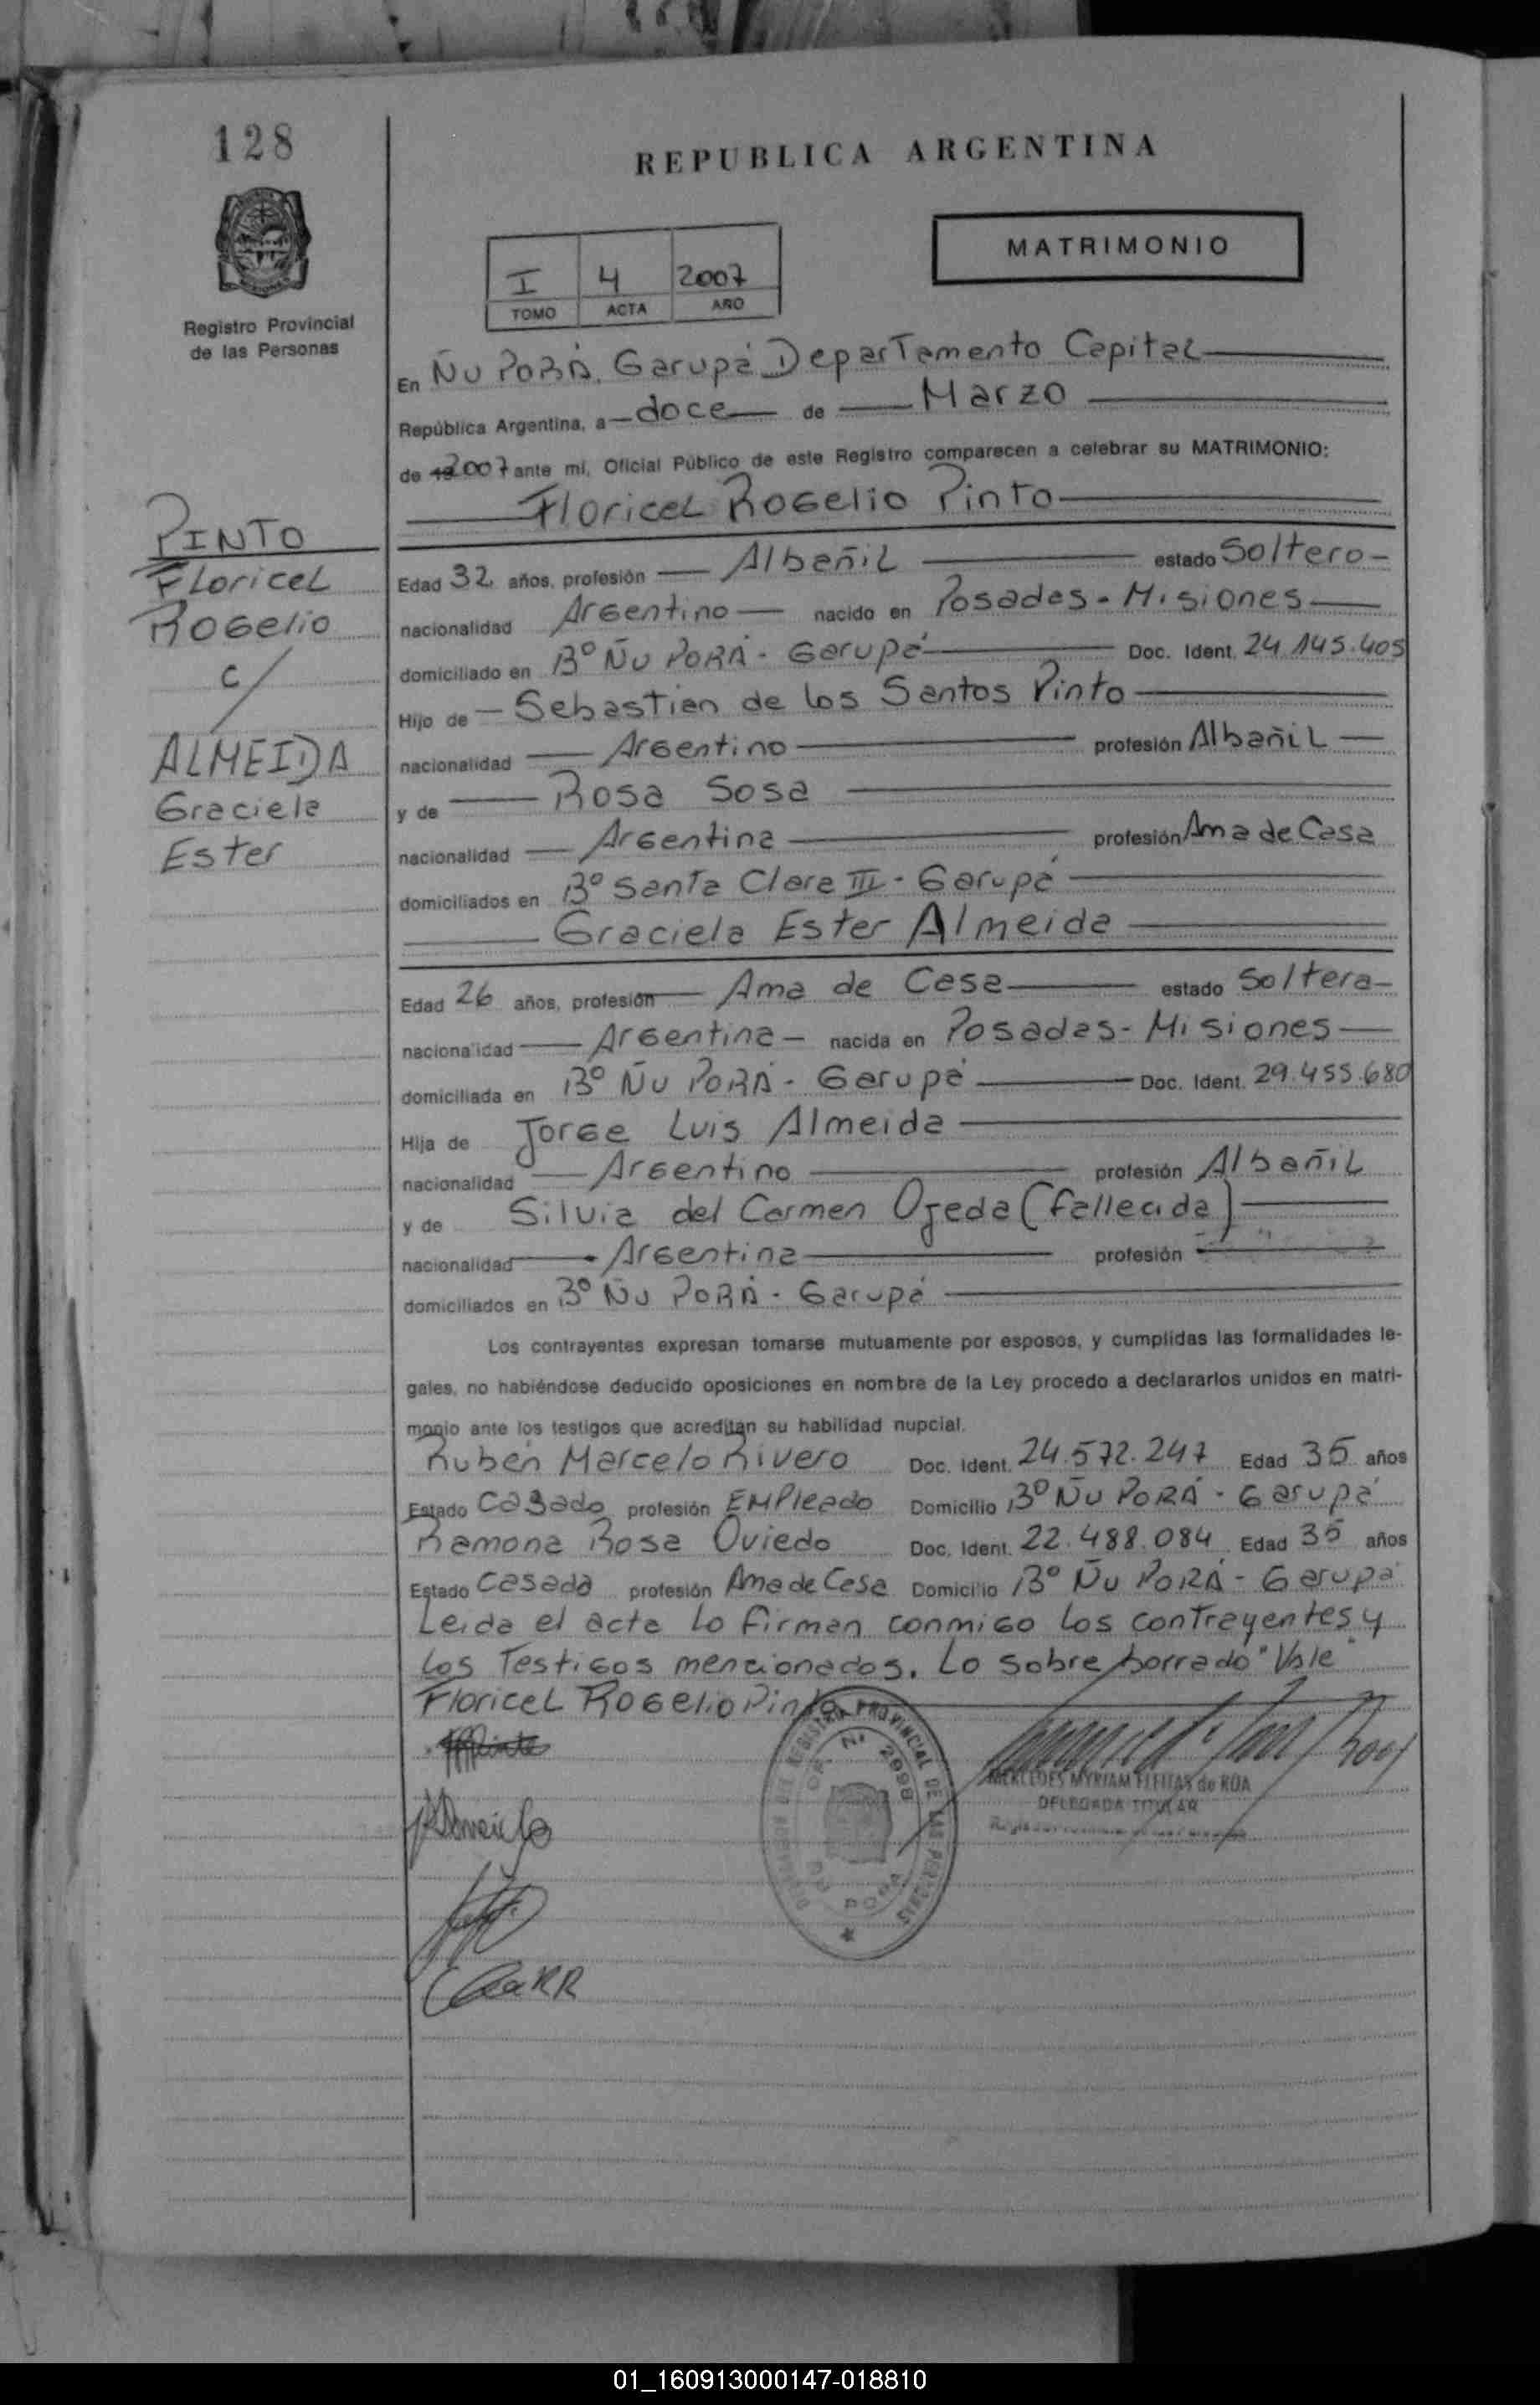 128
REPUBLICA ARGENTINA
MATRIMONIO
I 4 2007
TOMO ACTA AÑO
Registro Provincial
de las Personas
En Ñu PORÁ, Garupá Departamento Capital
República Argentina, a doce de Marzo
de 19 2007 ante mi, Oficial Público de este Registro comparecen a celebrar su MATRIMONIO:
Floricel Rogelio Pinto
PINTO
Floricel
Rogelio
c/
ALMEIDA
Graciela
Ester
Edad 32 años, profesión Albañil estado Soltero
nacionalidad Argentino nacido en Posadas - Misiones
domiciliado en Bº Ñu PORÁ - Garupá Doc. Ident. 24.145.405
Hijo de Sebastian de los Santos Pinto
nacionalidad Argentino profesión Albañil
y de Rosa Sosa
nacionalidad Argentina profesión Ama de Casa
domiciliados en Bº Santa Clara III - Garupá
Graciela Ester Almeida
Edad 26 años, profesión Ama de Casa estado Soltera
nacionalidad Argentina nacida en Posadas - Misiones
domiciliada en Bº Ñu PORÁ - Garupá Doc. Ident. 29.455.680
Hija de Jorge Luis Almeida
nacionalidad Argentino profesión Albañil
y de Silvia del Carmen Ojeda (fallecida)
nacionalidad Argentina profesión
domiciliados en Bº Ñu PORÁ - Garupá
Los contrayentes expresan tomarse mutuamente por esposos, y cumplidas las formalidades le-
gales, no habiéndose deducido oposiciones en nombre de la Ley procedo a declararlos unidos en matri-
monio ante los testigos que acreditan su habilidad nupcial.
Rubén Marcelo Rivero Doc. Ident. 24.572.247 Edad 35 años
Estado Casado profesión Empleado Domicilio Bº Ñu PORÁ - Garupá
Ramona Rosa Oviedo Doc. Ident. 22.488.084 Edad 35 años
Estado Casada profesión Ama de Casa Domicilio Bº Ñu PORÁ - Garupá
Leida el acta lo firman conmigo los contrayentes y
los Testigos mencionados. Lo sobre borrado "Vale"
Floricel Rogelio Pinto
REGISTRO PROVINCIAL DE LAS PERSONAS
Nº 2998
ÑU PORA
MERCEDES MYRIAM FLEITAS de RÚA
DELEGADA TITULAR
01_160913000147-018810